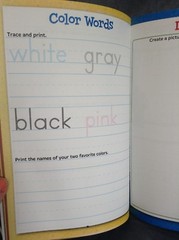 Color Words
Trace and print.
white gray
black pink
Print the names of your two favorite colors.
Create a pictu